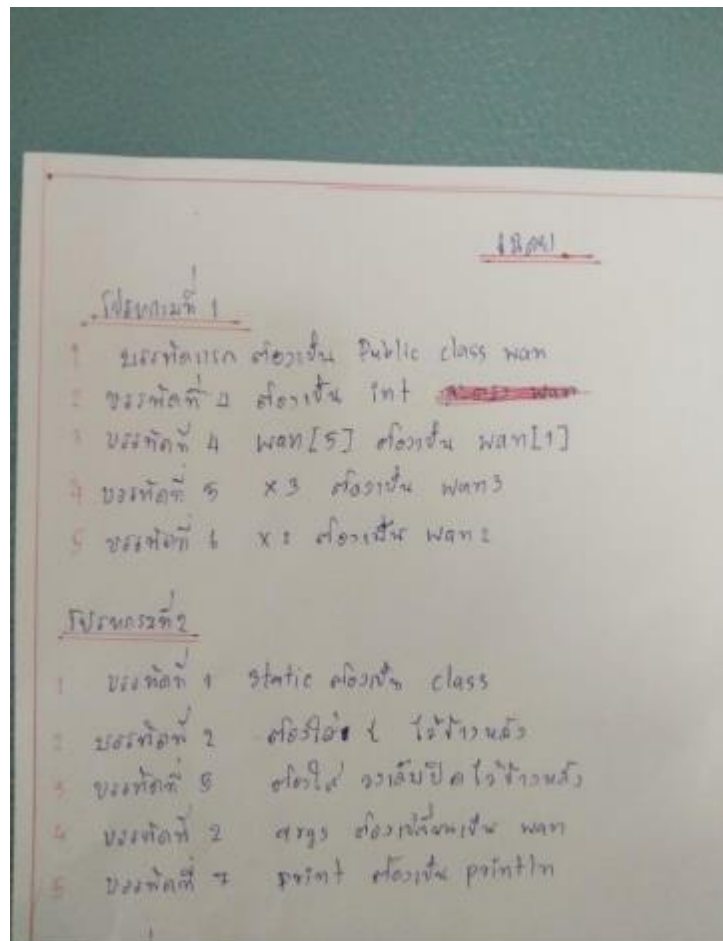 เฉลย
โปรแกรมที่ 1
1 บรรทัดแรก ต้องเป็น Public class wan
2 บรรทัดที่ 2 ต้องเป็น int
3 บรรทัดที่ 4 wan[5] ต้องเป็น wan[1]
4 บรรทัดที่ 5 x3 ต้องเป็น wan3
5 บรรทัดที่ 6 x2 ต้องเป็น wan2
โปรแกรมที่2
1 บรรทัดที่ 1 static ต้องเป็น class
2 บรรทัดที่ 2 ต้องใส่ { ไว้ข้างหลัง
3 บรรทัดที่ 5 ต้องใส่ วงเล็บปิดไว้ข้างหลัง
4 บรรทัดที่ 2 args ต้องเปลี่ยนเป็น wan
5 บรรทัดที่ 7 print ต้องเป็น println